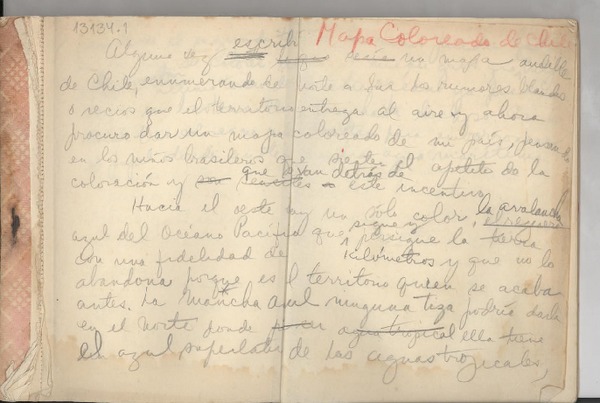 13134.1
Mapa Coloreado de Chile
Alguna vez escribí un mapa audible
de Chile, enumerando de norte a sur los rumores blandos
o recios que el territorio entrega al aire y ahora
procuro dar un mapa coloreado de mi país, pensando
en los niños brasileros que sienten el apetito de la
coloración y que van detrás de este incentivo.
Hacia el oeste hay un solo color, la avalancha
azul del Océano Pacífico que sigue y persigue la tierra
con una fidelidad de kilómetros y que no lo
abandona porque es el territorio quien se acaba
antes. La mancha azul ninguna tiza podría darla
en el norte donde agua tropical ella tiene
el azul superlativo de las aguas tropicales,